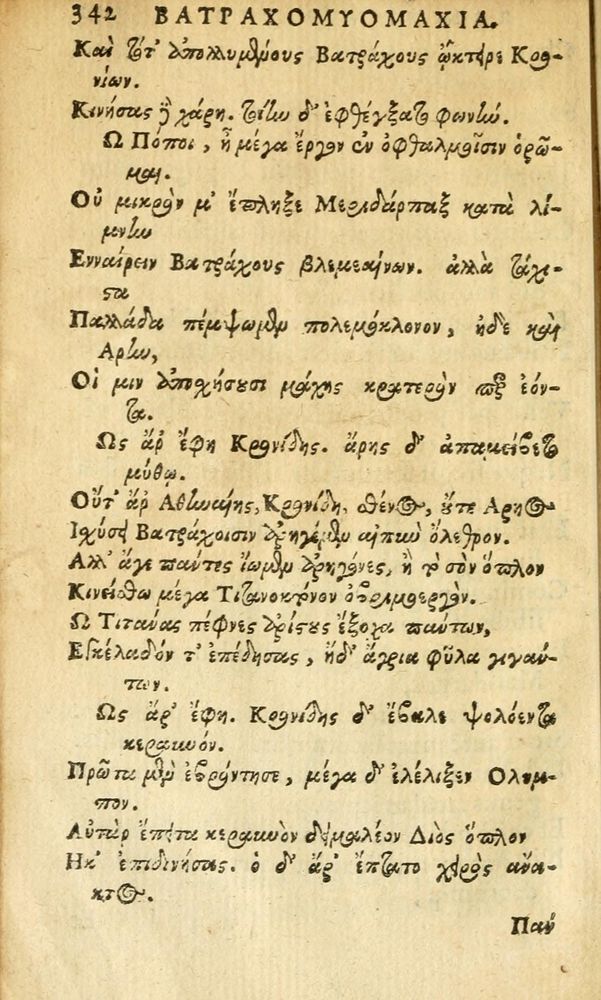 342 ΒΑΤΡΑΧΟΜΥΟΜΑΧΙΑ.
Καὶ τότ' ἀπολλυμένους Βατράχους ᾤκτειρε Κρο-
νίων.
Κινήσας δὲ χάρη. τοίην δ' ἐφθέγξατο φωνήν.
Ω Πόποι, ἦ μέγα ἔργον ἐν ὀφθαλμοῖσιν ὁρῶ-
μαι.
Οὐ μικρὸν μ' ἔπληξε Μεριδάρπαξ κατὰ λί-
μνην
Ενναίρειν Βατράχους βλεμεαίνων. ἀλλὰ τάχι-
στα
Παλλάδα πέμψωμεν πολεμόκλονον, ἠδὲ καὶ
Αρην,
Οἱ μιν ἀποσχήσουσι μάχης κρατερὸν περ ἐόν-
τα.
Ως ἄρ ἔφη Κρονίδης. ἄρης δ' ἀπαμείβετο
μύθῳ.
Οὔτ' ἄρ Αθηναίης, Κρονίδη, σθένος, οὔτε Αρηος
Ισχύσει Βατράχοισιν ἀρηγέμεν αἰπὺν ὄλεθρον.
Αλλ' ἄγε πάντες ἴωμεν ἀρηγόνες, ἢ τὸ σὸν ὅπλον
Κινείσθω μέγα Τιτανοκτόνον ὀβριμοεργόν.
Ω Τιτᾶνας πέφνες ἀρίστους ἔξοχα πάντων,
Εγκέλαδόν τ' ἐπέδησας, ἠδ' ἄγρια φῦλα γιγάν-
των.
Ως ἄρ' ἔφη. Κρονίδης δ' ἔβαλε ψολόεντα
κεραυνόν.
Πρῶτα μὲν ἐβρόντησε, μέγα δ' ἐλέλιξεν Ολυμ-
πον.
Αὐτὰρ ἔπειτα κεραυνὸν δειμαλέον Διὸς ὅπλον
Ηκ' ἐπιδινήσας. ὁ δ' ἄρ' ἔπτατο χειρὸς ἄνα-
κτος.
Πάν